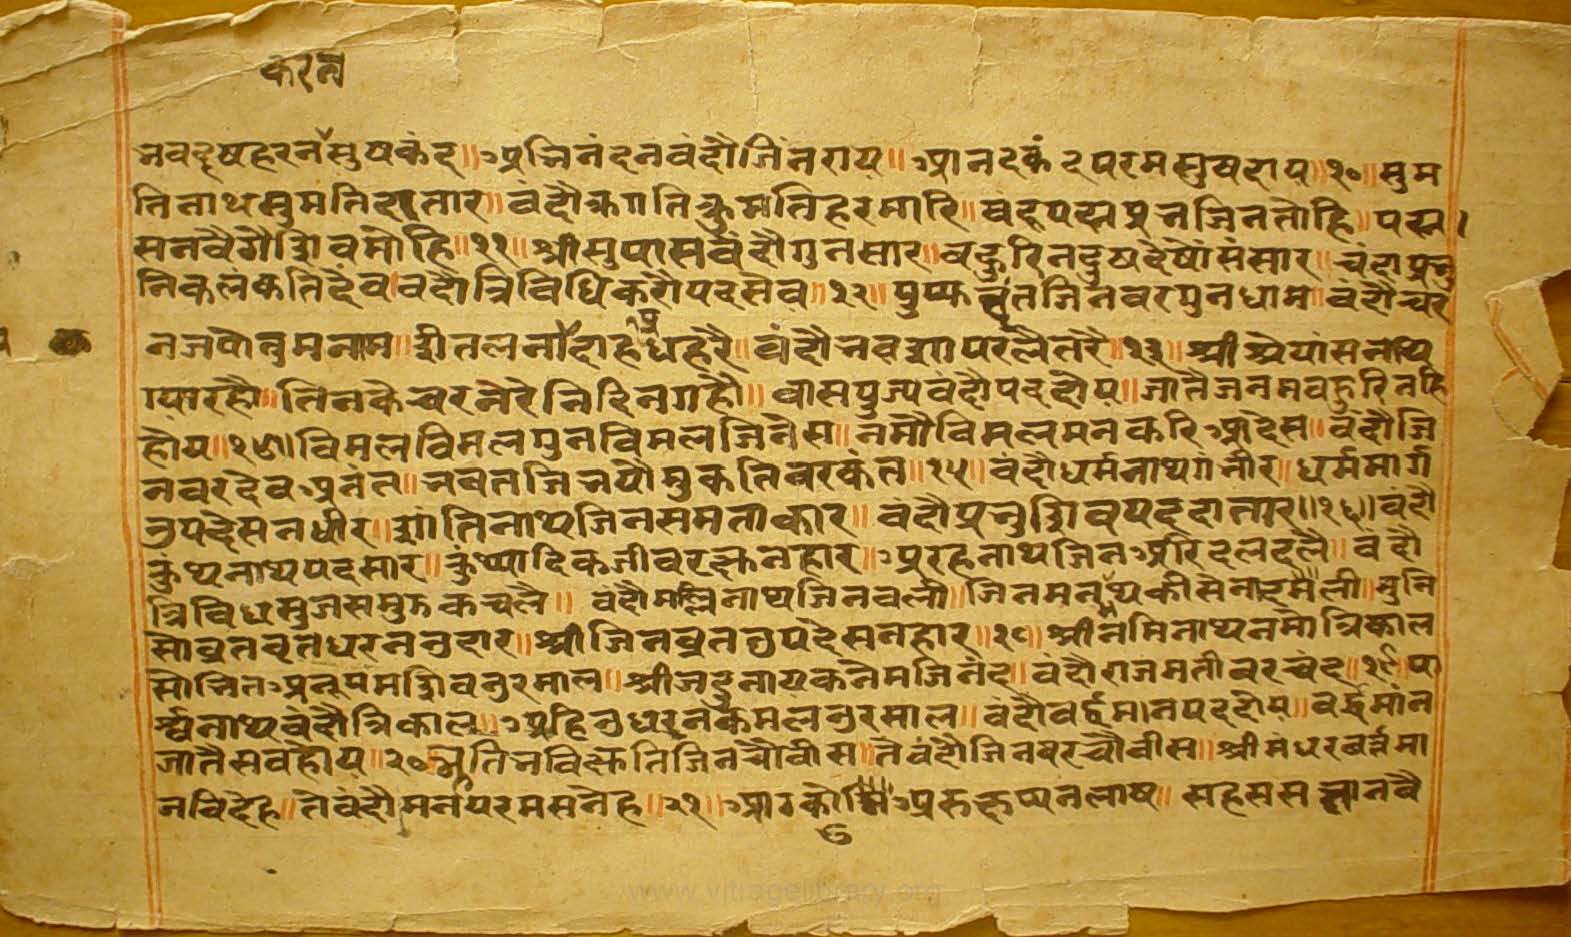 करन
भवदुषहरनसुषकंद॥अभिनंदनवंदौजिंनराय॥आनदकंदपरमसुषदाय॥१०॥सुम
तिनाथसुमतिदातार॥वंदौकुगतिकुमतिहरमारि॥षटपद्मप्रभजिनतोहि॥पद्मा
सनवैगैशिवमोहि॥११॥श्रीसुपासवंदौगुनसार॥बहुरिनदुषदेषौसंसार॥चंदाप्रभु
निकलंकतिदेव॥वंदौत्रिविधिकरौपदसेव॥१२॥पुष्फदंतजिनवरगुनधाम॥वंदौचर
नजपोतुमनाम॥शीतलनांदाहप्रघहरै॥वांदौभवशापरलैतरै॥१३॥श्रीश्रेयांसनाथि
ग्यारहौ॥तिनकेचरनेरेनिदिनगहौं॥वासपुज्यवंदौपददोय॥जातैजनमबहुरिनहि
होय॥१४॥विमलविमलगुनविमलजिनेस॥नमौविमलमनकरिआदेस॥वंदौजि
नवरदेवअनंत॥भवतजिभयौमुकतिवरकंत॥१५॥वंदौधर्मनाथगंभीर॥धर्ममार्ग
उपदेसनधीर॥शांतिनाथजिनसमताकार॥वंदौप्रभुशिवपददातार॥१६॥वंदौ
कुंथनाथपदसार॥कुंथ्यादिकजीवरछनहार॥अरहनाथजिनअरिदलदलै॥वंदौ
त्रिविधसुजसमुक्तकचलै॥वंदौमल्लिनाथजिनवली॥जिनमनमथकीसेनादलमली॥मुनि
सोव्रतवृतधरनउदार॥श्रीजिनव्रतउपदेसनहार॥१८॥श्रीनमिनाथनमौत्रिकाल
सोभितअनूपमशिवउरमाल॥श्रीजदुनायकनेमजिनंद॥वंदौराजमतीवरचंद॥१९॥पा
र्श्वनाथवंदौत्रिकाल॥अहिउधरनकमलउरमाल॥वंदौवर्द्धमानपददोय॥वर्द्धमांन
जातैसबहोय॥२०॥अतितभविछेतिजिनचौवीस॥तेवंदौजिनवरचौवीस॥श्रीमंधरवर्त्तमा
नविदेह॥तेवंदौमनपरमसनेह॥२१॥आठकोडिअरुछप्पनलाष॥सहससत्तानवै